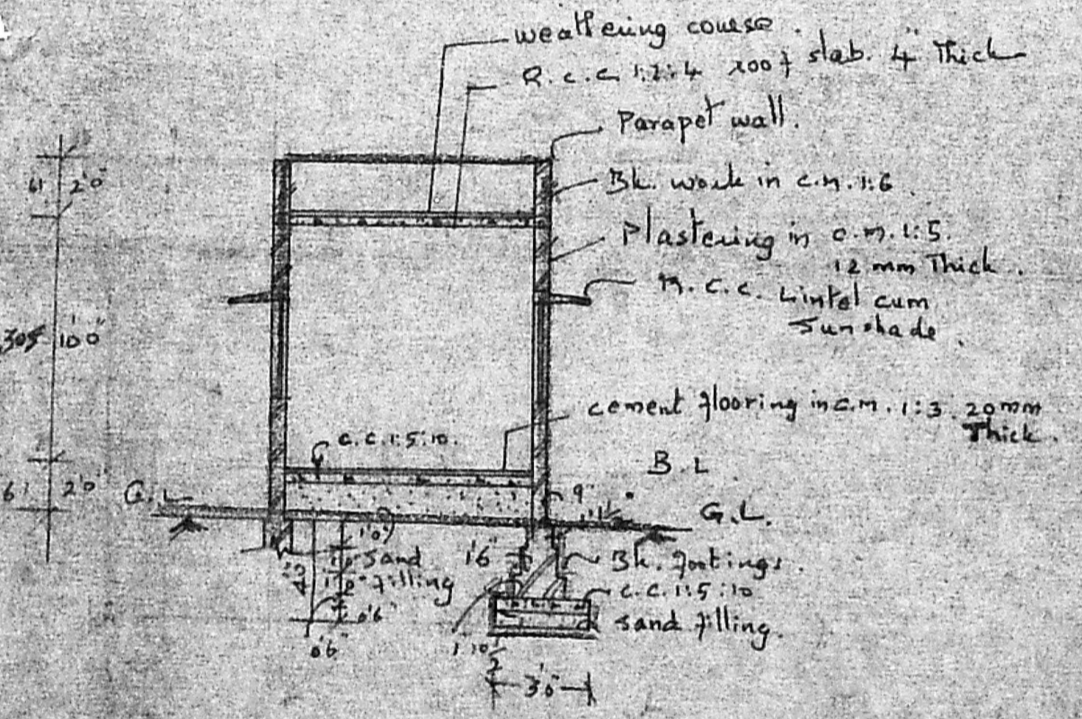 weathering course.
R.c.c 1:2:4 roof slab. 4" Thick
Parapet wall.
Bk. work in c.m. 1:6.
Plastering in c.m. 1:5.
12 mm Thick.
R.c.c. Lintel cum
Sunshade.
cement flooring in c.m. 1:3. 20mm
Thick.
c.c. 1:5:10.
B.L
61 2'0"
305 10'0"
61 2'0"
G.L
9"
G.L.
1'0"
sand
filling
0'6"
0'6"
1'6"
Bk. footings.
c.c. 1:5:10
sand filling.
3'0"